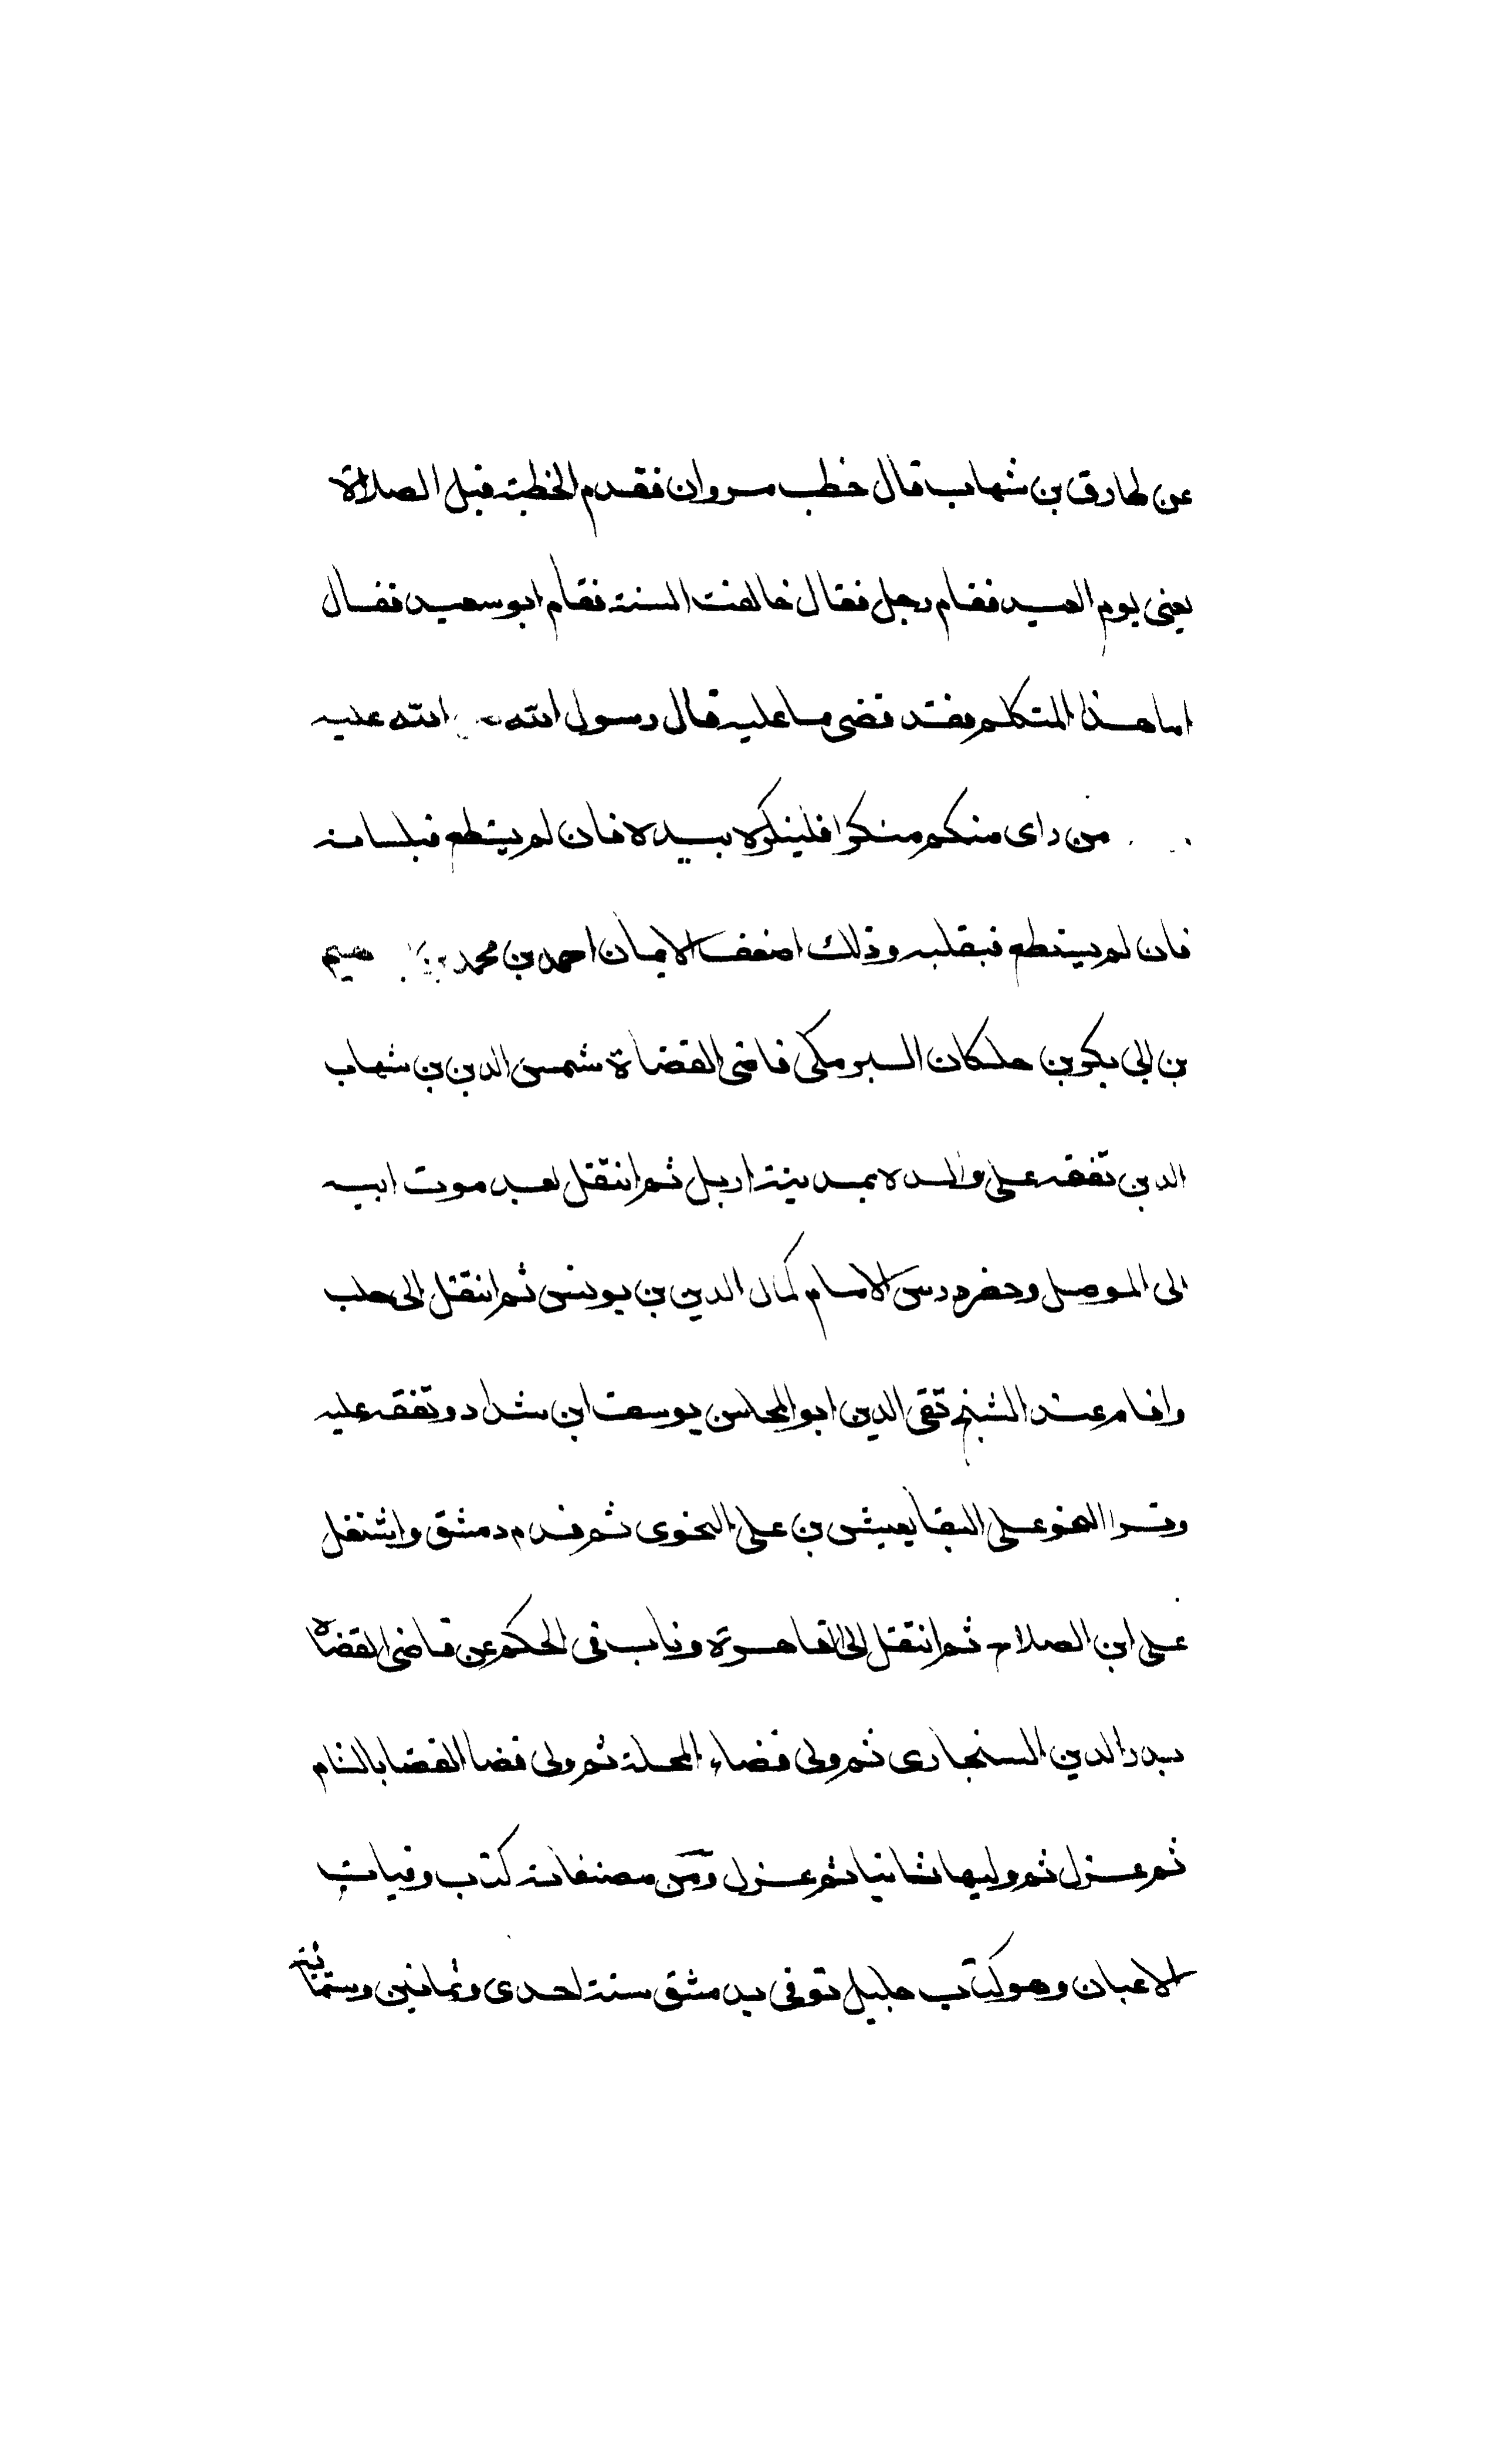 عن طارق بن شهاب قال خطب مروان فقدم الخطبة قبل الصلاة
يعني يوم العيد فقام رجل فقال خالفت السنة فقام ابو سعيد فقال
اما هذا المتكلم فقد قضى ما عليه قال رسول الله الله عليه
من راى منكم منكرا فلينكره بيده فان لم يستطع فبلسانه
فان لم يستطع فبقلبه وذلك اضعف الايمان احمد بن محمد بن
بن ابي بكر بن خلكان البرمكي قاضي القضاة شمس الدين بن شهاب
الدين تفقه على والده بمدينة اربل ثم انتقل بعد موت ابيه
الى الموصل وحضر درس الامام كمال الدين بن يونس ثم انتقل الى حلب
واقام عند الشيخ تقي الدين ابو المحاسن يوسف ابن شداد وتفقه عليه
وقرا النحو على البقا يعيش بن على النحوى ثم قدم دمشق واشتغل
على ابن الصلاح ثم انتقل الى القاهرة وناب في الحكم عن قاضي القضاه
بدر الدين السنجارى ثم ولى قضاء المحلة ثم ولى قضا القضا بالشام
ثم عزل ثم وليها ثانيا ثم عزل ومن مصنفاته كتاب وفيات
الاعيان وهو كتاب جليل توفى بدمشق سنة احدى وثمانين وستمائة